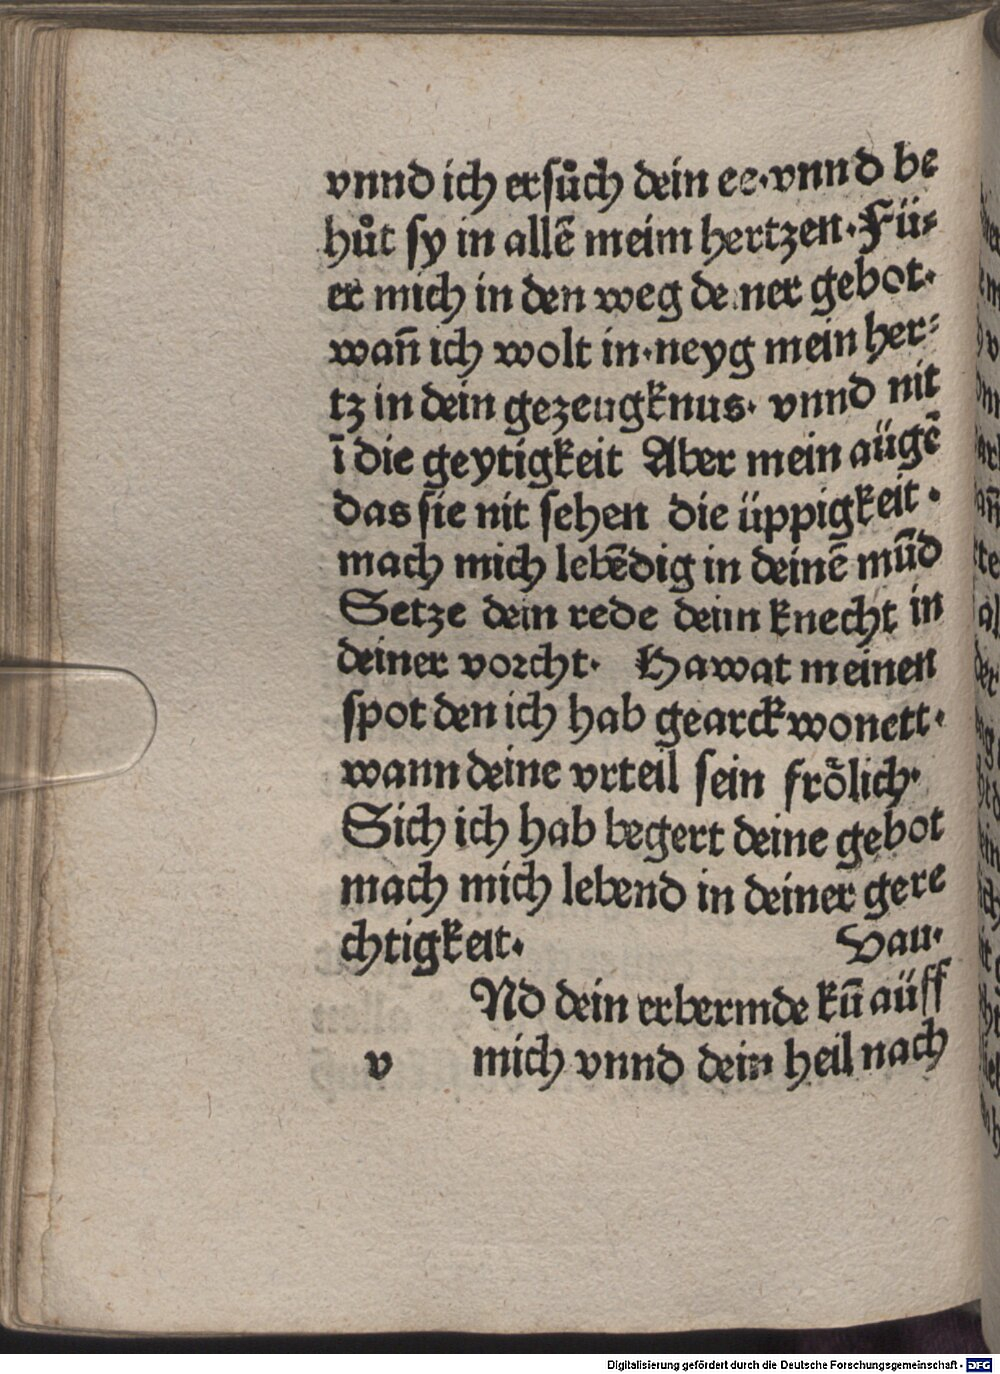 vnnd ich ersůch dein ee·vnnd be
hůt sy in allē meim hertzen·Fü⸗
er mich in den weg deiner gebot·
wañ ich wolt in·neyg mein her⸗
tz in dein gezeugknus· vnnd nit
ī die geytigkeit Aber mein aügē
das sie nit sehen die üppigkeit·
mach mich lebēdig in deinē mūd
Setze dein rede deim knecht in
deiner vorcht· Hawat meinen
spot den ich hab gearckwonett·
wann deine vrteil sein frőlich·
Sich ich hab begert deine gebot
mach mich lebend in deiner gere
chtigkeit· Vau·
Nd dein erbermde kū aüff
v mich vnnd dein heil nach
Digitalisierung gefördert durch die Deutsche Forschungsgemeinschaft · DFG